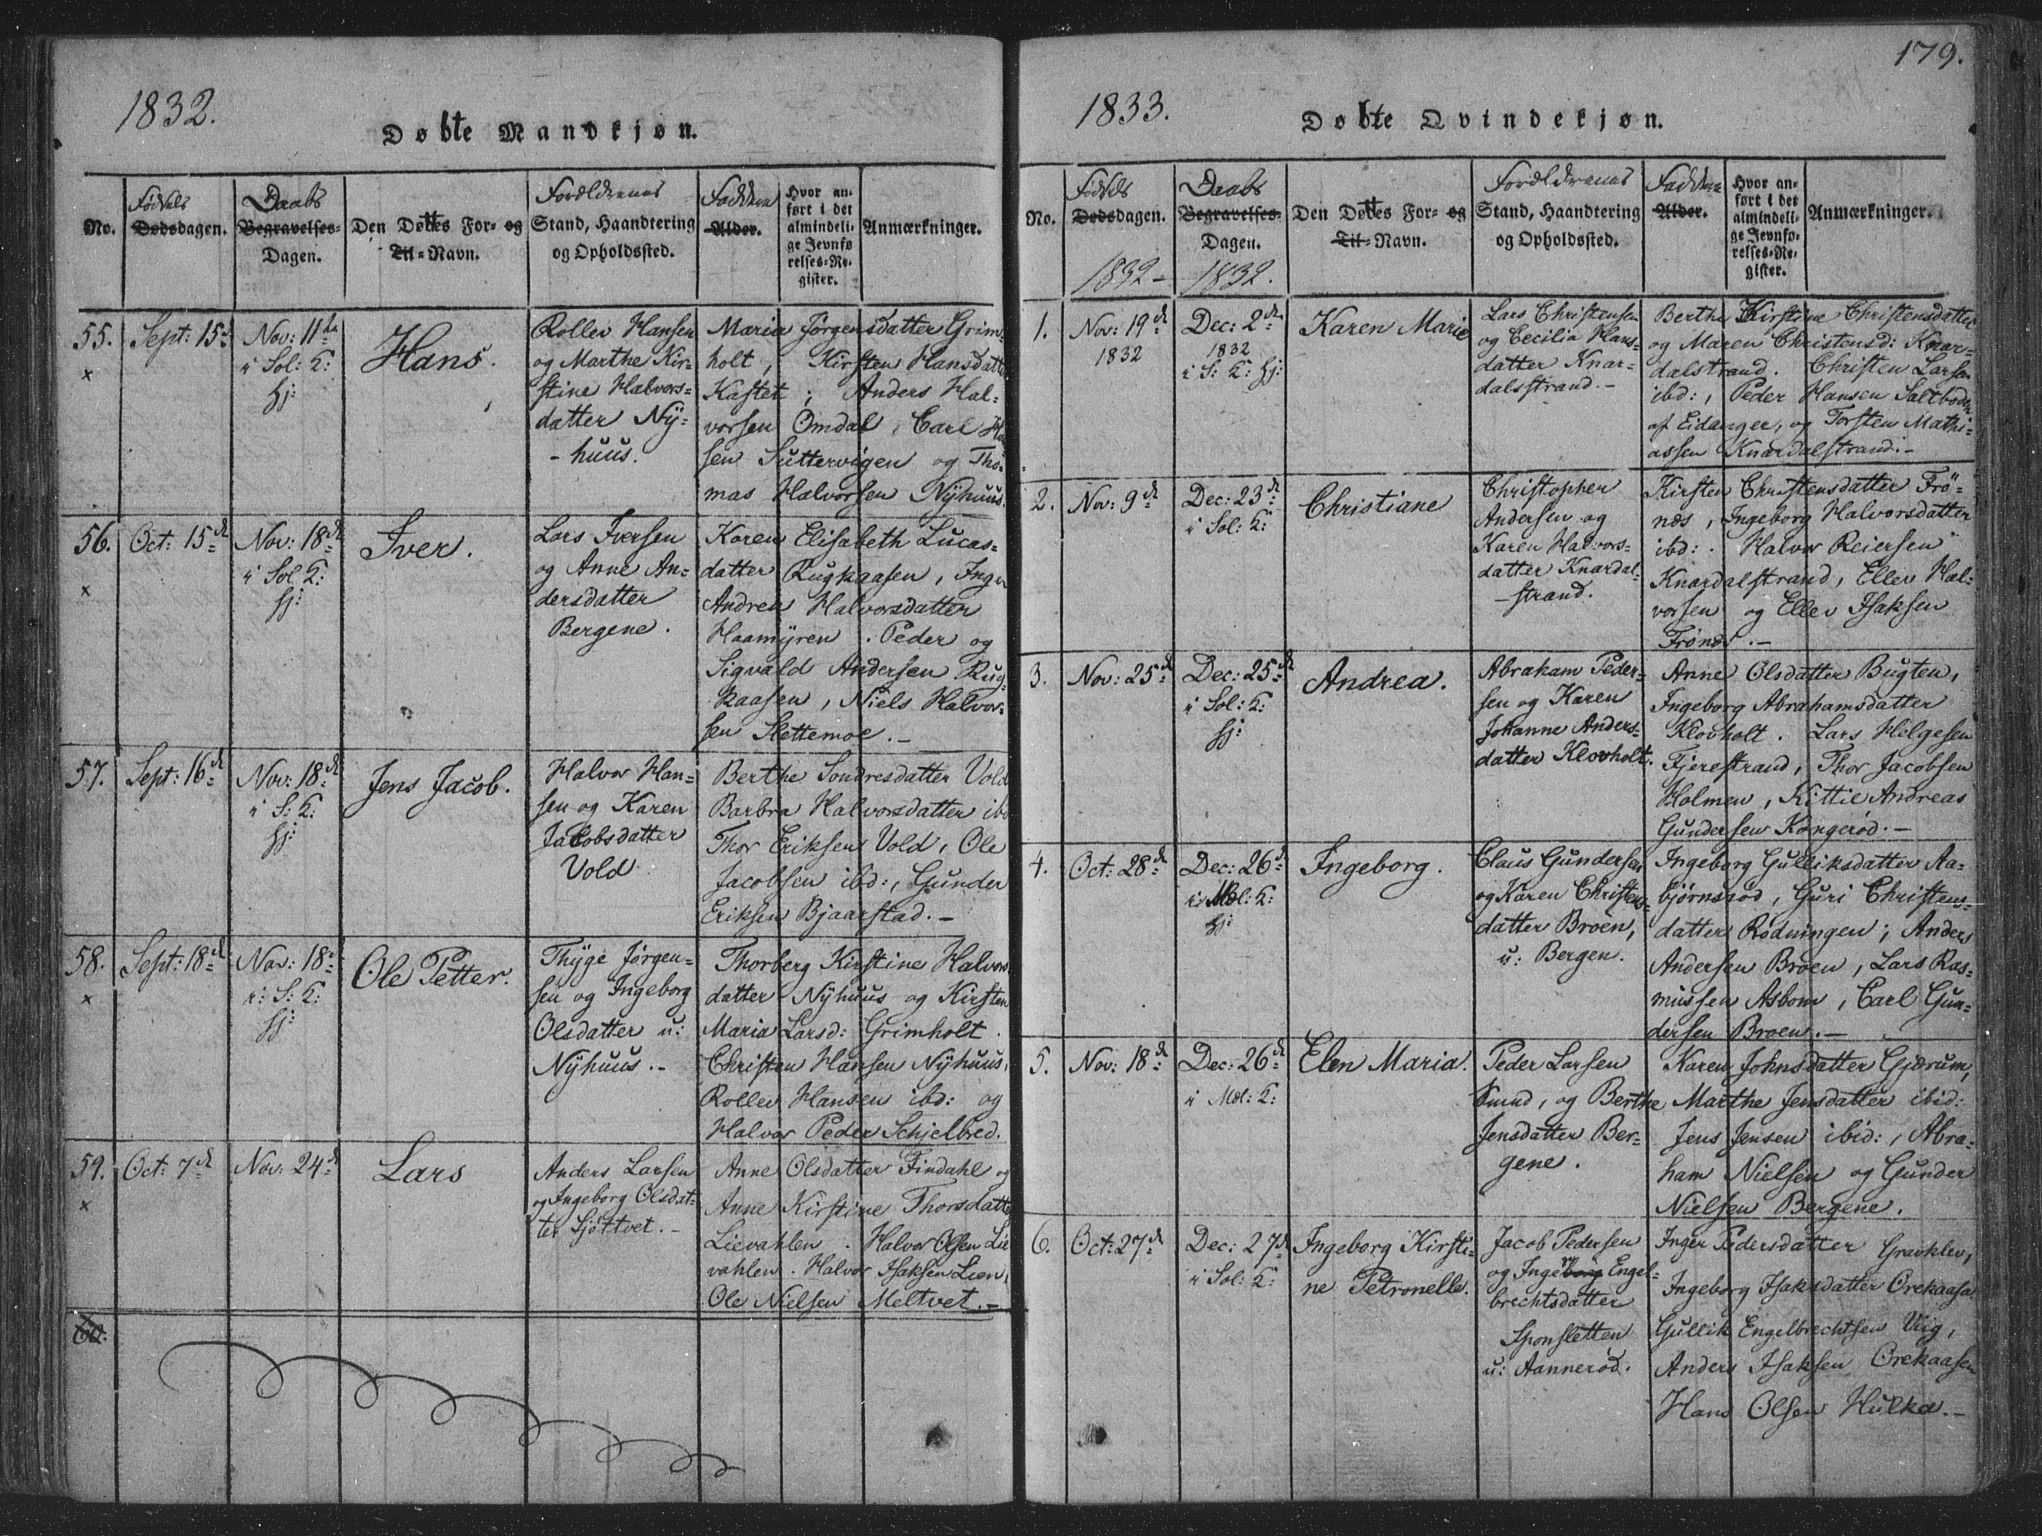 1832.
Døbte Mandkjøn.
No.
Fødsels
Dødsdagen.
Daabs
Begravelses-
Dagen.
Den Døttes For- og
Til-Navn.
Forældrenes
Stand, Haandtering
og Opholdssted.
Faddere
Alder.
Hvor an-
ført i det
almindeli-
ge Jevnfø-
relses-Re-
gister.
Anmærkninger.
55.
x
Sept: 15d
Nov: 11te
i Sol: K:
hj:
Hans.
Rollev Hansen
og Marthe Kir-
stine Halvors-
datter Ny-
huus.
Maria Jørgensdatter Grim-
holt, Kirsten Hansdatt
Kastet; Anders Hal-
vorsen Omdal, Carl Han
sen Suttervigen og Tho-
mas Halvorsen Nyhuus.
56.
x
Oct: 15d
Nov: 18d
i Sol K:
hj:
Iver.
Lars Iversen
og Anne An-
dersdatter
Bergene.
Karen Elisabeth Lucas-
datter Rugkaasen, Inger
Andrea Halvorsdatter
Haamyren. Peder og
Sigvald Andersen Rug-
kaasen, Niels Halvor-
sen Slettemoe.
57.
Sept: 16d
Nov: 18d
i S: K:
hj:
Jens Jacob.
Halvor Han-
sen og Karen
Jacobsdatter
Vold
Berthe Sondresdatter Vold
Barbra Halvorsdatter ibd
Thor Eriksen Vold, Ole
Jacobsen ibd:, Gunder
Eriksen Bjaarstad.
58.
x
Sept: 18d
Nov: 18d
i: S: K:
hj:
Ole Petter.
Thyge Jørgen-
sen og Ingeborg
Olsdatter u:
Nyhuus.
Thorberg Kirstine Halvors
datter Nyhuus og Kirsten
Maria Larsd: Grimholt.
Christen Hansen Nyhuus,
Rollev Hansen ibd: og
Halvor Peder Schjelbred.
59.
x
Oct: 7d
Nov: 24d
Lars
Anders Larsen
og Ingeborg Olsdat-
ter Sjøttvet.
Anne Olsdatter Findahl og
Anne Kirstine Thorsdatter
Lievahlen. Halvor Olsen Lie
vahlen. Halvor Isaksen Lien,
Ole Nielsen Meltvet.
60.
179.
1833.
Døbte Qvindekjøn.
No.
Fødsels
Dødsdagen.
1832
Daabs
Begravelses-
Dagen.
1832.
Den Døttes For- og
Til-Navn.
Forældrenes
Stand, Haandtering
og Opholdssted.
Faddere
Alder.
Hvor an-
ført i det
almindeli-
ge Jevnfø-
relses-Re-
gister.
Anmærkninger.
1.
Nov: 19d
1832
Dec: 2d
1832
i S: K: hj:
Karen Marie
Lars Christensen
og Cecilia Hans-
datter Knar-
dalsstrand.
Berthe Kirstine Christensdatter
og Maren Christensd: Knar-
dalstrand. Christen Larsen
ibd:, Peder Hansen Saltboden
af Eidanger, og Torsten Mathi-
assen Knardalstrand.
2.
Nov: 9d
Dec: 23d
i Sol: K:
Christiane
Christopher
Andersen og
Karen Halvors-
datter Knardal-
strand.
Kirsten Christensdatter Frö-
næs, Ingeborg Halvorsdatter
ibd:. Halvor Reiersen
Knardalstrand, Ellev Hal-
vorsen og Ellev Isaksen
Frönæs.
3.
Nov: 25d
Dec: 25d
i Sol: K:
hj:
Andrea.
Abraham Peder-
sen og Karen
Johanne Anders-
datter Klovholt.
Anne Olsdatter Bugten,
Ingeborg Abrahamsdatter
Klovholt. Lars Helgesen
Fjerestrand, Thor Jacobsen
Holmen, Kittil Andreas
Gundersen Kongerød.
4.
Oct: 28d
Dec: 26d
i Mel: K:
hj:
Ingeborg.
Claus Gundersen
og Karen Christens-
datter Broen,
u: Bergen.
Ingeborg Gulliksdatter Aa-
bjørnsrød, Guri Christens-
datter Rødningen; Anders
Andersen Broen, Lars Ras-
mussen Asbom, Carl Gun-
dersen Broen.
5.
Nov: 18d
Dec: 26d
i Mel: K:
Elen Maria.
Peder Larsen
Smud, og Berthe
Jensdatter Ber-
gene.
Karen Johnsdatter Gjærum,
Marthe Jensdatter ibid:
Jens Jensen ibid:, Abra-
ham Nielsen og Gunder
Nielsen Bergene.
6.
Oct: 27d
Dec: 27d
i Sol: K:
Ingeborg Kirsti-
ne Petronelle.
Jacob Pedersen
og Ingeborg Engel-
brechtsdatter
Sponsletten
u: Aannerød.
Inger Pedersdatter Gravklev,
Ingeborg Isaksdatter Orekaasa
Gullik Engelbrechtsen Viig,
Anders Isaksen Orekaasen
Hans Olsen Hulka.